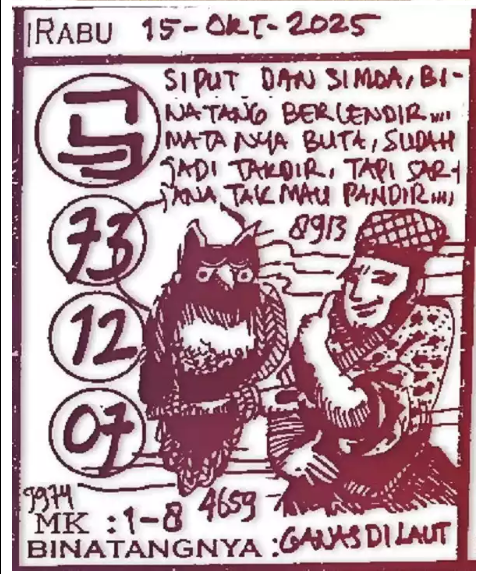 RABU 15-OKT-2025
SIPUT DAN SIMDA, BI-
NATANG BERLENDIR....
MATANYA BUTA, SUDAH
JADI TAKDIR, TAPI SAR-
JANA TAK MAU PANDIR....
73
8913
12
07
7974
4659
MK : 1-8
BINATANGNYA : GANAS DI LAUT